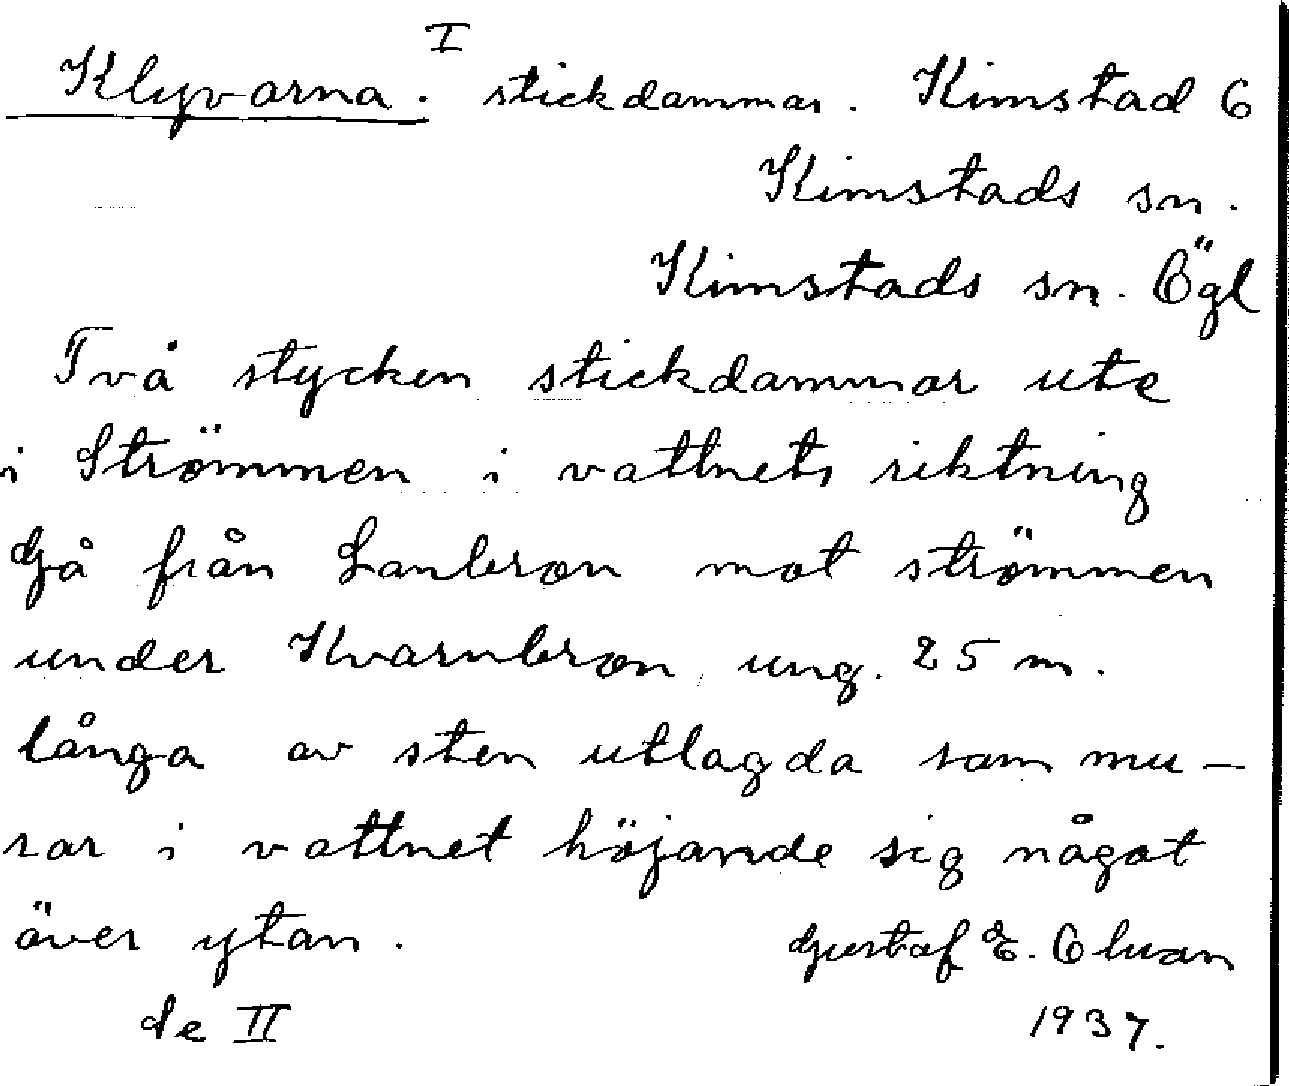 I
Klyvarna. stickdammar. Kimstad 6
Kimstads sn.
Kimstads sn. Ögl
Två stycken stickdammar ute
i Strömmen i vattnets riktning
Gå från Lanbron mot strömmen
under Kvarnbron, ung. 25 m.
långa av sten utlagda som mu-
rar i vattnet höjande sig något
över ytan.
Gustaf E. Olson
Se II 1937.